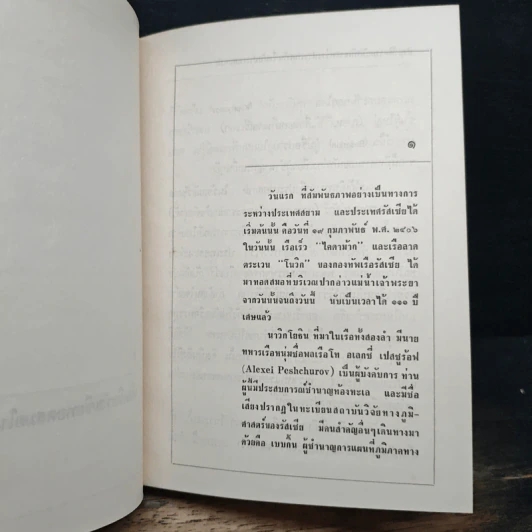 ๑
วันแรก ที่สัมพันธภาพอย่างเป็นทางการ
ระหว่างประเทศสยาม และประเทศรัสเซียได้
เริ่มต้นนั้น คือวันที่ ๑๙ กุมภาพันธ์ พ.ศ. ๒๔๐๖
ในวันนั้น เรือเร็ว "ไคดามัก" และเรือลาด
ตระเวน "โนวิก" ของกองทัพเรือรัสเซีย ได้
มาทอดสมอที่บริเวณปากอ่าวแม่น้ำเจ้าพระยา
จากวันนั้นจนถึงวันนี้ นับเป็นเวลาได้ ๑๑๑ ปี
เศษแล้ว
นาวิกโยธิน ที่มาในเรือทั้งสองลำ มีนาย
ทหารเรือหนุ่มชื่อพลเรือโท อเลกซี่ เปสชูร้อฟ
(Alexei Peshchurov) เป็นผู้บังคับการ ท่าน
ผู้นี้มีประสบการณ์ชำนาญท้องทะเล และมีชื่อ
เสียงปรากฏในทะเบียนสถาบันวิจัยทางภูมิ-
ศาสตร์ของรัสเซีย มีคนสำคัญอื่นๆเดินทางมา
ด้วยคือ เบบกิ้น ผู้ชำนาญการแผนที่ภูมิภาคทาง